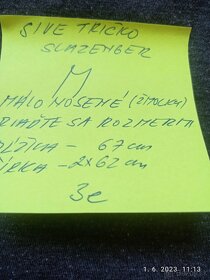 SIVE TRIČKO
SLAZENGER
M
MÁLO NOSENÉ (ŽMOLKY)
RIAĎTE SA ROZMERMI
DĹŽKA - 67 cm
ŠÍRKA - 2x62 cm
3e
1. 6. 2023 11:13